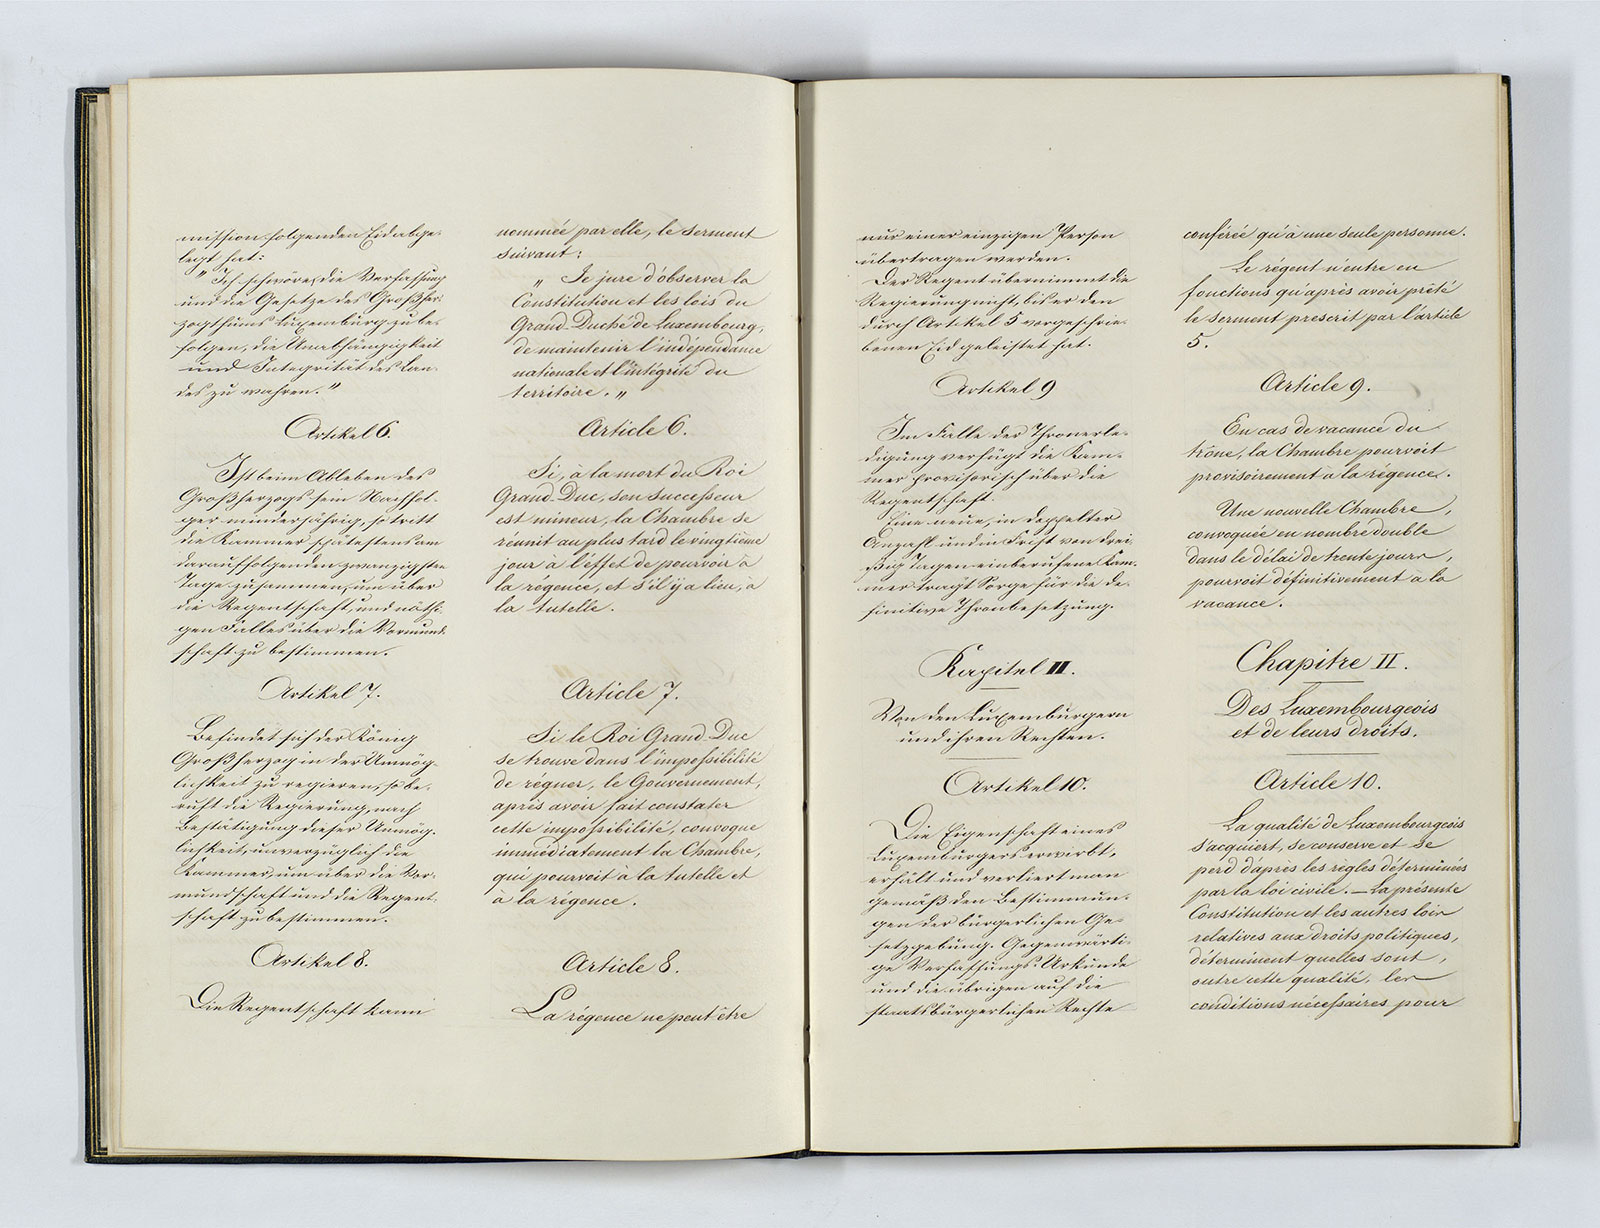 mission folgenden Eid abge-
legt hat:
„Ich schwöre, die Verfassung
und die Gesetze des Großher-
zogthums Luxemburg zu be-
folgen, die Unabhängigkeit
und Integrität des Lan-
des zu wahren."
Artikel 6.
Ist beim Ableben des
Großherzogs sein Nachfol-
ger minderjährig, so tritt
die Kammer spätestens am
darauffolgenden zwanzigsten
Tage zusammen, um über
die Regentschaft, und nöthi-
gen Falles über die Vormund-
schaft zu bestimmen.
Artikel 7.
Befindet sich der König
Großherzog in der Unmög-
lichkeit zu regieren, so be-
ruft die Regierung, nach
Bestätigung dieser Unmög-
lichkeit, unverzüglich die
Kammer, um über die Vor-
mundschaft und die Regent-
schaft zu bestimmen.
Artikel 8.
Die Regentschaft kann
nommée par elle, le serment
suivant:
„ Je jure d'observer la
Constitution et les lois du
Grand-Duché de Luxembourg,
de maintenir l'indépendance
nationale et l'intégrité du
territoire. „
Article 6.
Si, à la mort du Roi
Grand-Duc, son successeur
est mineur, la Chambre se
réunit au plus tard le vingtième
jour à l'effet de pourvoir à
la régence, et s'il y a lieu, à
la tutelle.
Article 7.
Si le Roi Grand-Duc
se trouve dans l'impossibilité
de régner, le Gouvernement,
après avoir fait constater
cette impossibilité, convoque
immédiatement la Chambre,
qui pourvoit à la tutelle et
à la régence.
Article 8.
La régence ne peut être
nur einer einzigen Person
übertragen werden.
Der Regent übernimmt die
Regierung nicht, bis er den
durch Artikel 5 vorgeschrie-
benen Eid geleistet hat.
Artikel 9
Im Falle der Thronerle-
digung verfügt die Kam-
mer provisorisch über die
Regentschaft.
Eine neue, in doppelter
Anzahl und in Frist von drei-
ßig Tagen einberufene Kam-
mer trägt Sorge für die de-
finitive Thronbesetzung.
Kapitel II.
Von den Luxemburgern
und ihren Rechten.
Artikel 10.
Die Eigenschaft eines
Luxemburgers erwirbt,
erhält und verliert man
gemäß den Bestimmun-
gen der bürgerlichen Ge-
setzgebung. Gegenwärti-
ge Verfassungs-Urkunde
und die übrigen auf die
staatsbürgerlichen Rechte
conférée qu'à une seule personne.
Le régent n'entre en
fonctions qu'après avoir prêté
le serment prescrit par l'article
5.
Article 9.
En cas de vacance du
trône, la Chambre pourvoit
provisoirement à la régence.
Une nouvelle Chambre,
convoquée en nombre double
dans le délai de trente jours,
pourvoit définitivement à la
vacance.
Chapitre II.
Des Luxembourgeois
et de leurs droits.
Article 10.
La qualité de Luxembourgeois
s'acquiert, se conserve et se
perd d'après les règles déterminées
par la loi civile. — La présente
Constitution et les autres lois
relatives aux droits politiques,
déterminent quelles sont,
outre cette qualité, les
conditions nécessaires pour